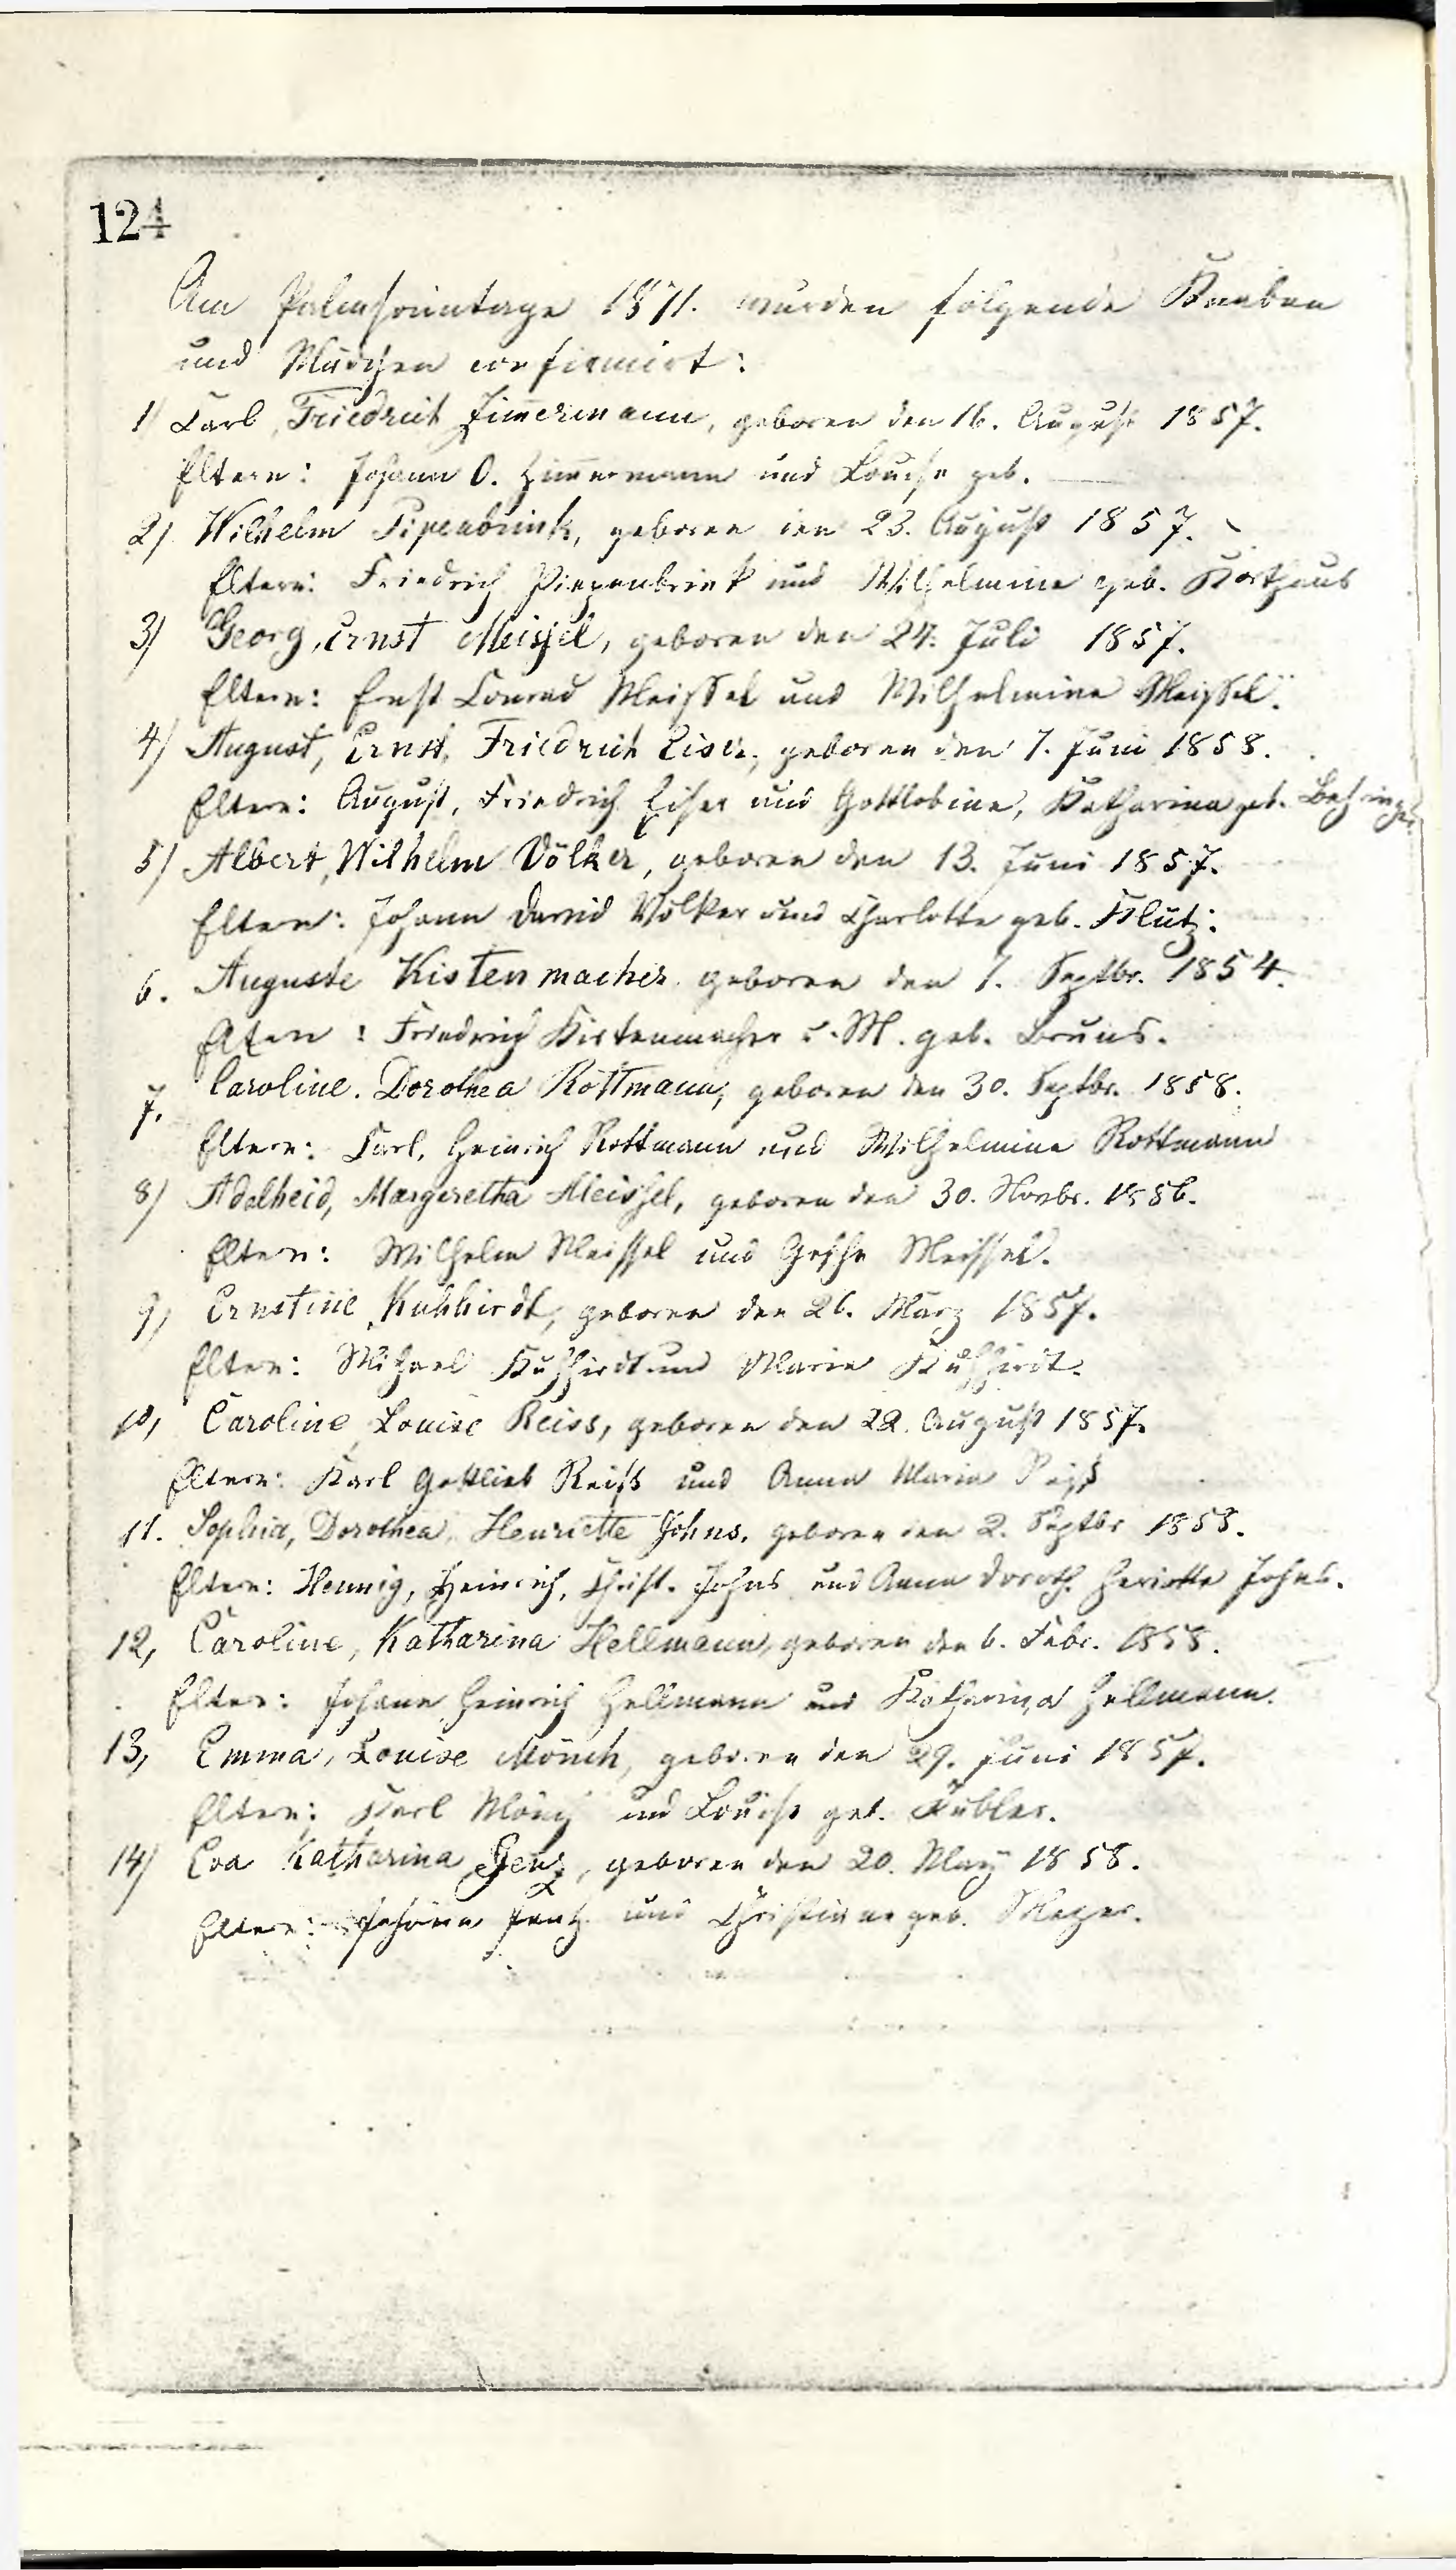 124
Am Palmsonntage 1871. wurden folgende Knaben
und Mädchen confirmirt:
1) Carl, Friedrich Zimmermann, geboren den 16. August 1857.
Eltern: Johann O. Zimmermann und Louise geb.
2) Wilhelm Pipenbrink, geboren den 23. August 1857.
Eltern: Friedrich Piepenbrink und Wilhelmine geb. Korthaus
3) Georg, Ernst Meissel, geboren den 24. Juli 1857.
Eltern: Ernst Conrad Meissel und Wilhelmine Meissel.
4) August, Ernst, Friedrich Eiser, geboren den 7. Juni 1858.
Eltern: August, Friedrich Eiser und Gottlobine, Katharina geb. Behringer
5) Albert, Wilhelm Völker, geboren den 13. Juni 1857.
Eltern: Johann David Völker und Charlotte geb. Klütz.
6. Auguste Kistenmacher geboren den 7. Septbr. 1854.
Eltern: Friedrich Kistenmacher u. M. geb. Bruns.
7. Caroline. Dorothea Rottmann, geboren den 30. Septbr. 1858.
Eltern: Carl, Heinrich Rottmann und Wilhelmine Rottmann
8) Adelheid, Margaretha Meissel, geboren den 30. Novbr. 1856.
Eltern: Wilhelm Meissel und Gesche Meissel.
9, Ernstine Kuhhirdt, geboren den 26. März 1857.
Eltern: Michael Kuhhirdt und Maria Kuhhirdt.
10, Caroline Louise Reiss, geboren den 22. August 1857.
Eltern: Karl Gottlieb Reiß und Anna Maria Reiß
11. Sophia, Dorothea, Henriette Johns, geboren den 2. Septbr 1858.
Eltern: Hennig, Heinrich, Christ. Johns und Anna Doroth. Heriette Johns.
12, Caroline, Katharina Hellmann, geboren den 6. Febr. 1858.
Eltern: Johann Heinrich Hellmann und Katharina Hellmann.
13, Emma, Louise Mönch, geboren den 29. Juni 1857.
Eltern: Karl Mönch und Louise geb. Kübler.
14) Eva Katharina Jenz, geboren den 20. May 1858.
Eltern: Johann Jentz und Christina geb. Mezger.